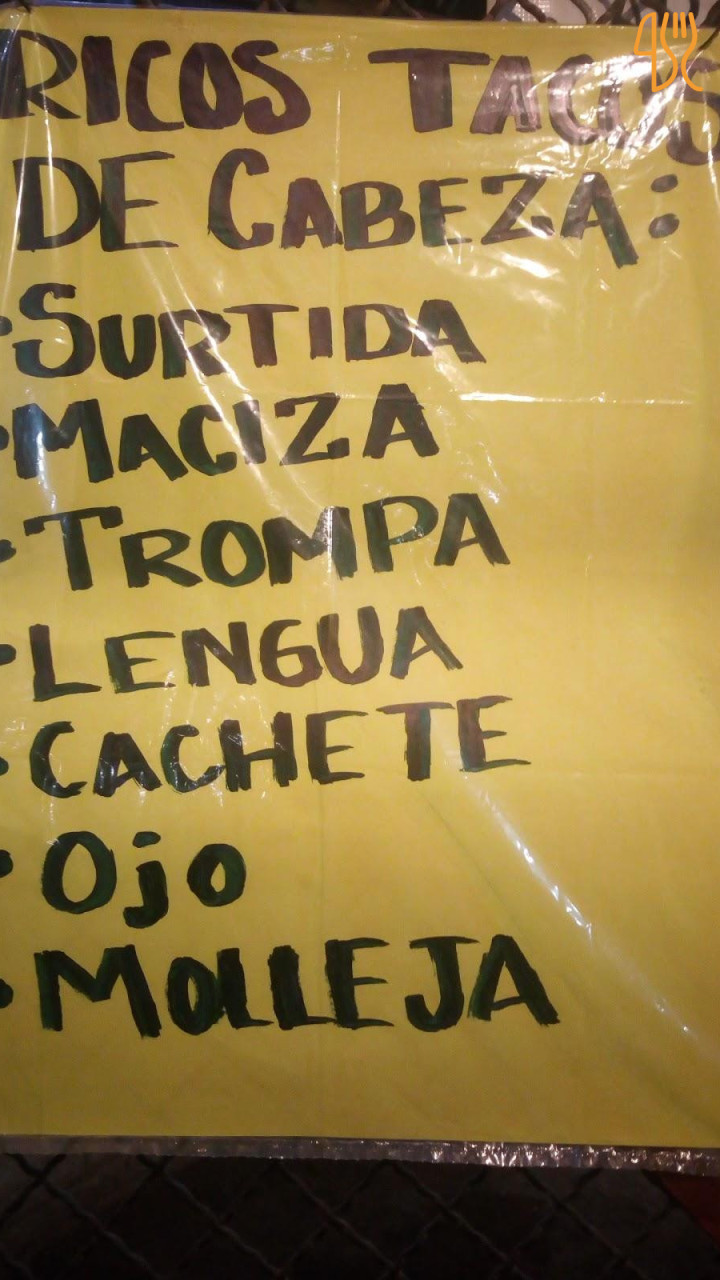 RICOS TACOS
DE CABEZA:
•SURTIDA
•MACIZA
•TROMPA
•LENGUA
•CACHETE
•Ojo
•MOLLEJA